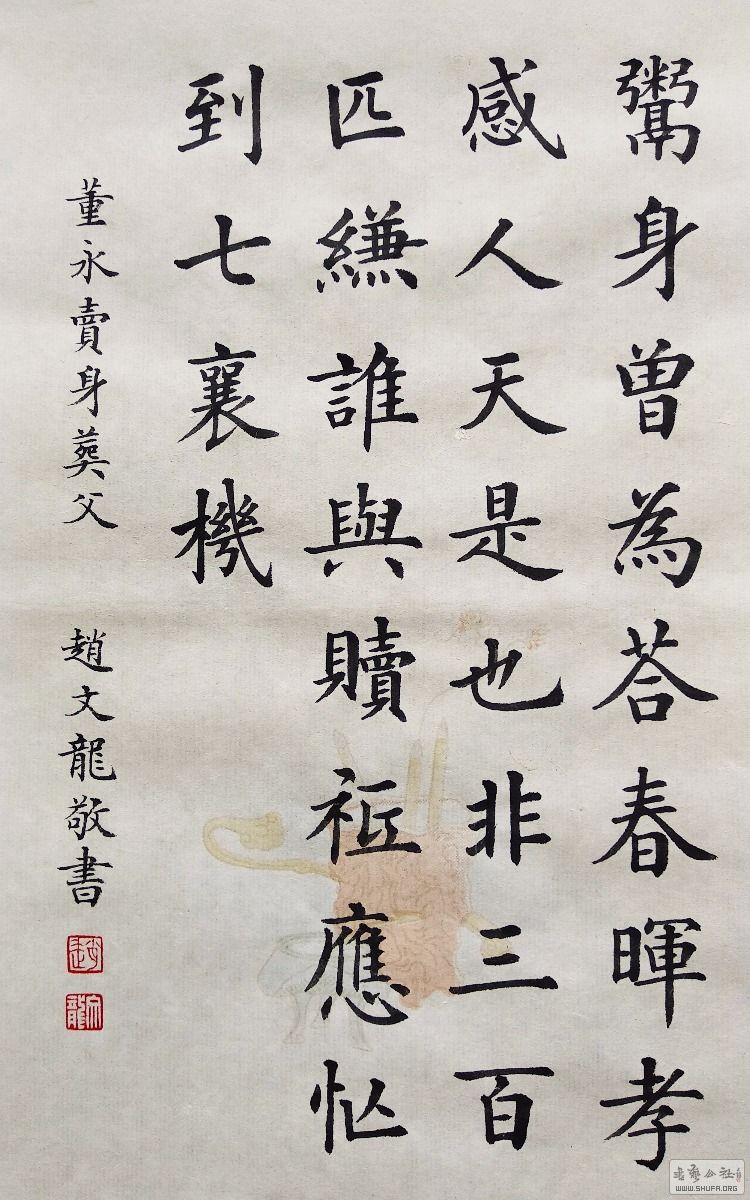 鬻身曾為荅春暉孝
感人天是也非三百
匹縑誰與贖祗應忙
到七襄機
董永賣身葬父 趙文龍敬書
趙
文龍
書藝公社
WWW.SHUFA.ORG